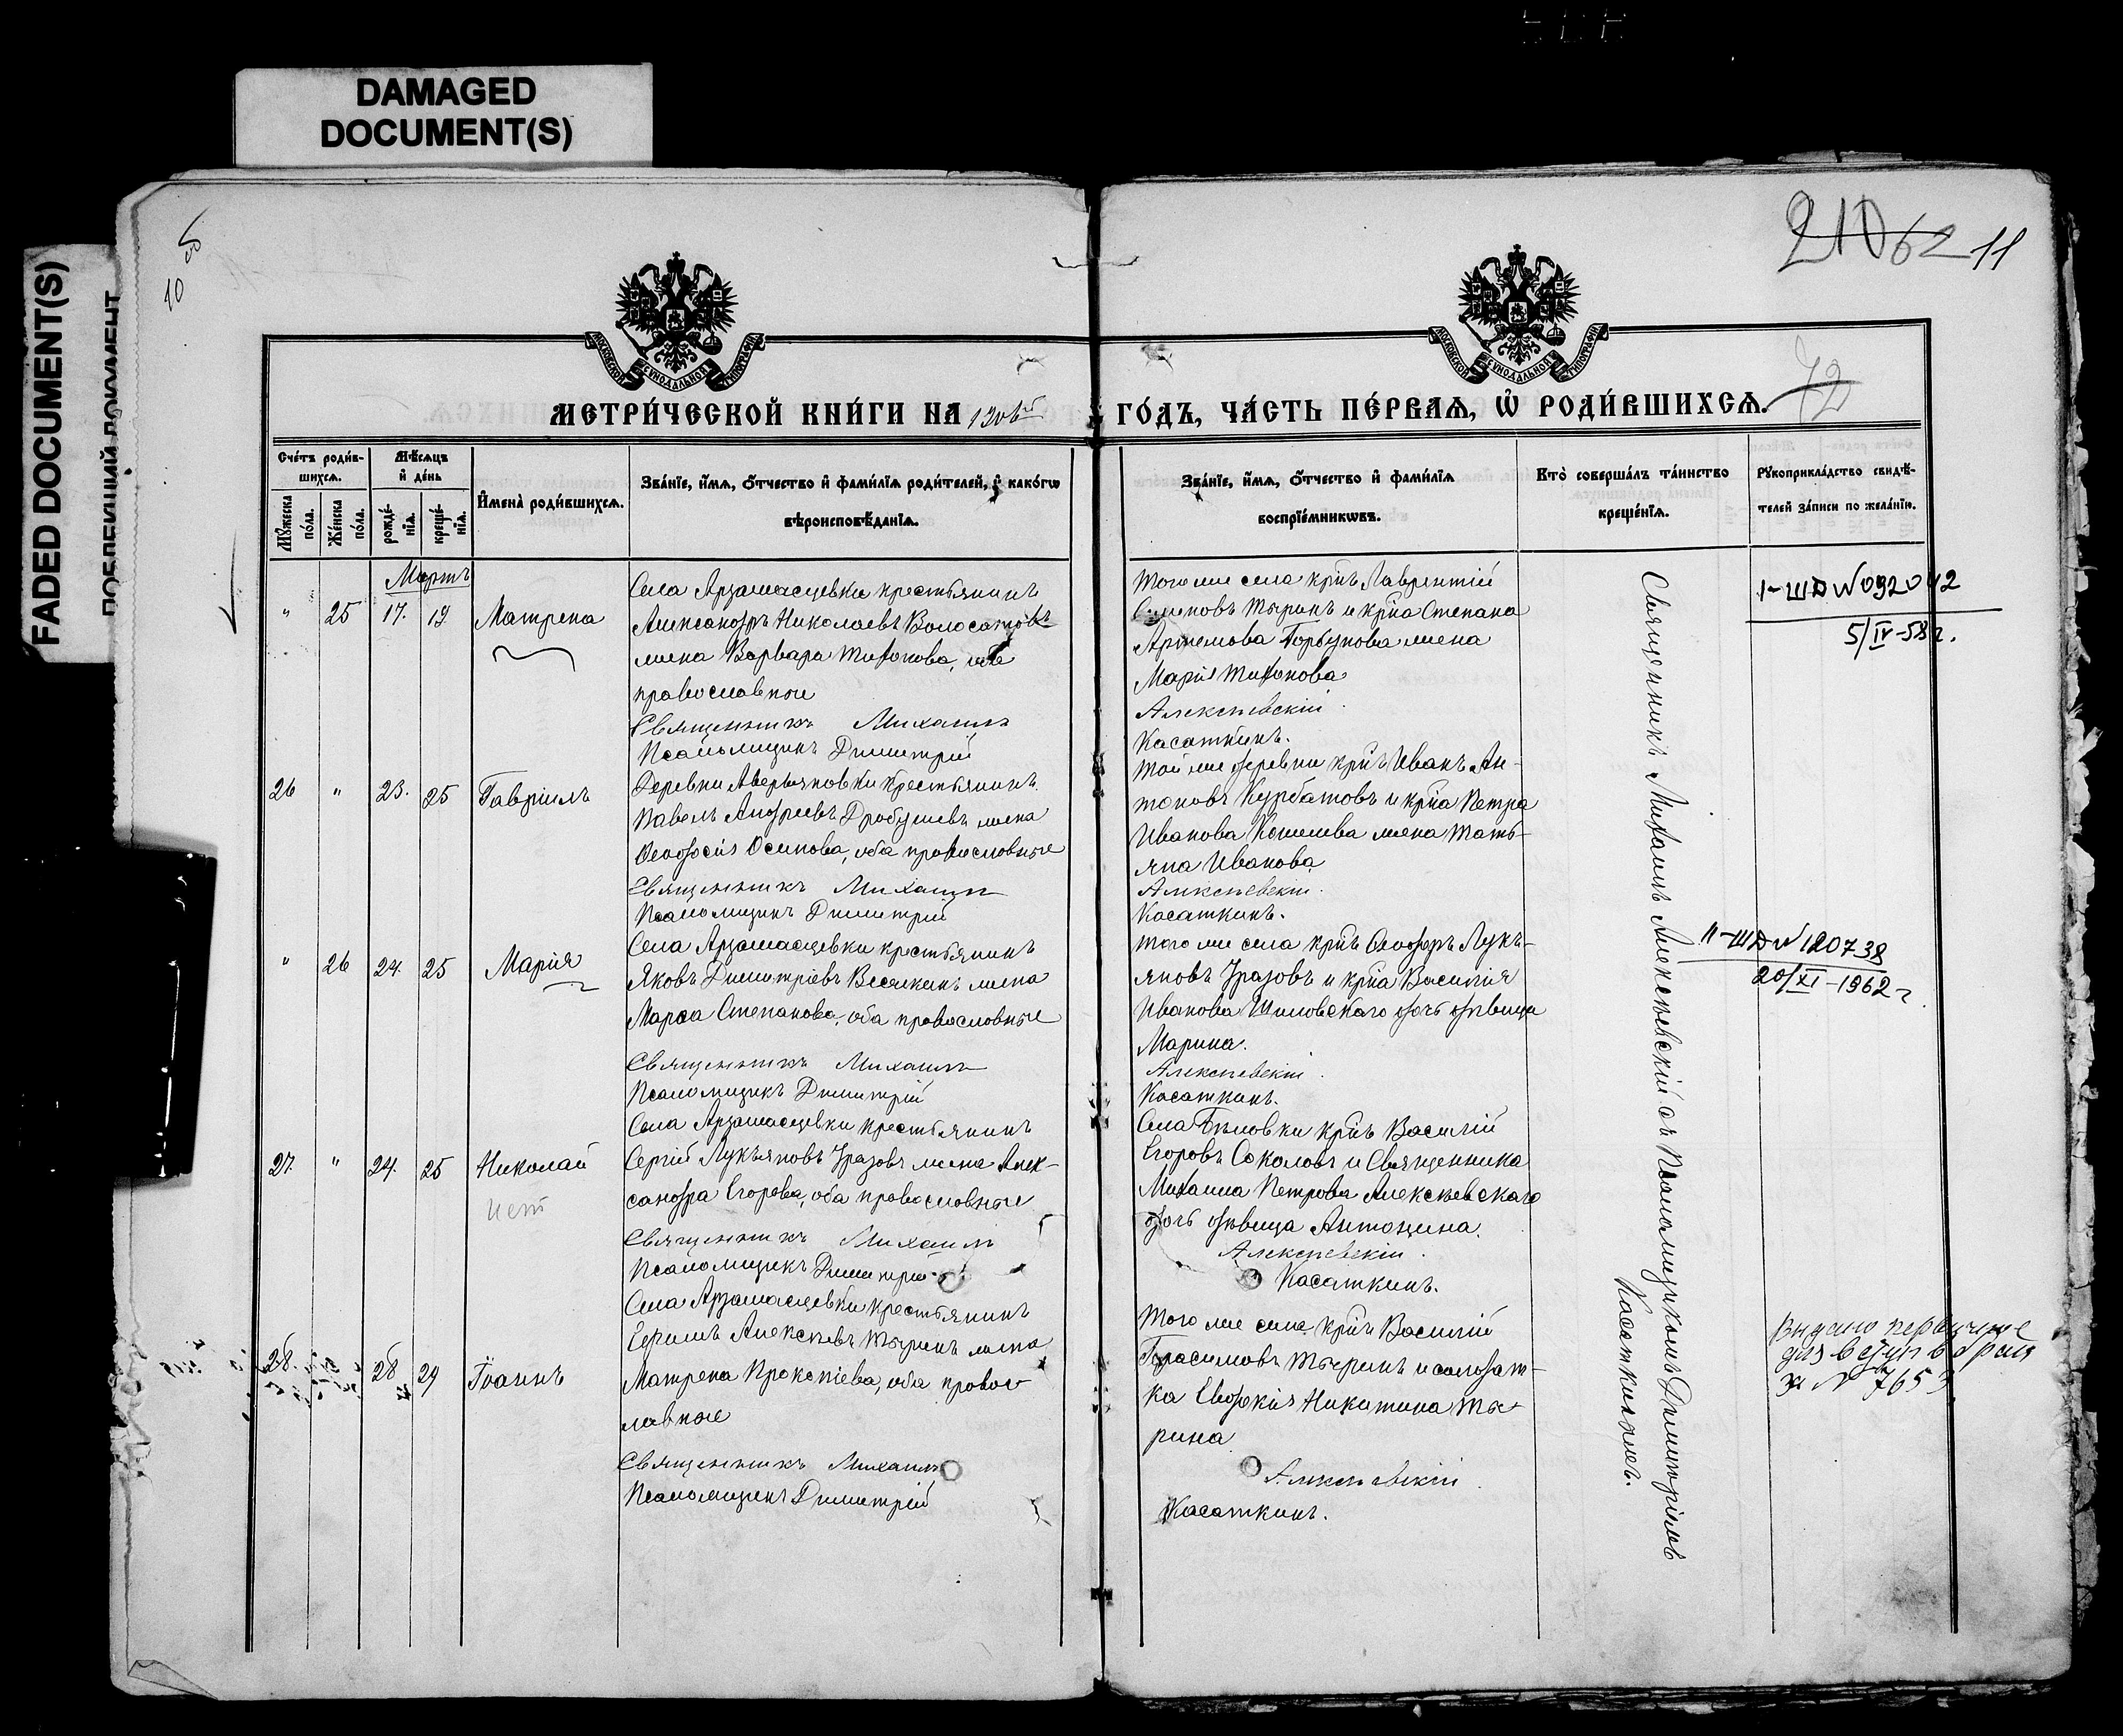 DAMAGED
DOCUMENT(S)
FADED DOCUMENT(S)
10
62 11
72
МОСКОВСКОЙ СѴНОДАЛЬНОЙ ТИПОГРАФІИ
МОСКОВСКОЙ СѴНОДАЛЬНОЙ ТИПОГРАФІИ
МЕТРИ́ЧЕСКОЙ КНИ́ГИ НА
ГО́ДЪ, ЧА́СТЬ ПЕ́РВАѦ, Ѡ҆ РОДИ́ВШИХСѦ.
Сче́тъ роди́в-
шихсѧ.
Мꙋ́жеска по́ла.
Же́нска по́ла.
Мѣ́сѧцъ
и҆ де́нь
рожде́-
нїѧ.
креще́-
нїѧ.
И҆мена̀ роди́вшихсѧ.
Зва́нїе, и҆́мѧ, ѻ҆́тчество и҆ фами́лїѧ роди́телей, и҆ како́гѡ
вѣроисповѣ́данїѧ.
Зва́нїе, и҆́мѧ, ѻ҆́тчество и҆ фами́лїѧ
воспрїе́мникѡвъ.
Кто̀ соверша́лъ та́инство
креще́нїѧ.
Рꙋкоприкла́дство свидѣ́-
телей за́писи по жела́нїю.
Мартъ
" 25 17. 19. Матрена
Села Арзамасцевки крестьянинъ
Александръ Николаевъ Волосатовъ
жена Варвара Тихонова, оба
православные
Священникъ Михаилъ
Псаломщикъ Димитрій
Того же села кр͠нъ Лаврентій
Семеновъ Тыринъ и кр͠на Степана
Артемова Горбунова жена
Марія Тихонова
Алексѣевскій
Касаткинъ.
I-ШД №092042
5/IV-58г.
26 " 23. 25 Гавріилъ
Деревни Аверьяновки крестьянинъ
Павелъ Андреевъ Дробушевъ жена
Ѳеодосія Осипова, оба православные
Священникъ Михаилъ
Псаломщикъ Димитрій
Той же деревни кр͠нъ Иванъ Ан-
тоновъ Курбатовъ и кр͠на Петра
Иванова Кошелева жена Тать-
яна Иванова
Алексѣевскій
Касаткинъ.
" 26 24. 25 Марія
Села Арзамасцевки крестьянинъ
Яковъ Димитріевъ Веселкинъ жена
Марѳа Степанова, оба православные
Священникъ Михаилъ
Псаломщикъ Димитрій
Того же села кр͠нъ Ѳеодоръ Лукь-
яновъ Уразовъ и кр͠на Василія
Иванова Шиловскаго дочь дѣвица
Марина.
Алексѣевскій
Касаткинъ.
II-ШД № 120738
20/XI-1962 г
27. " 24. 25 Николай
нет
Села Арзамасцевки крестьянинъ
Сергій Лукьяновъ Уразовъ жена Алек-
сандра Егорова, оба православные
Священникъ Михаилъ
Псаломщикъ Димитрій
Села Бѣловки кр͠нъ Василій
Егоровъ Соколовъ и Священника
Михаила Петрова Алексѣевскаго
дочь дѣвица Антонина.
Алексѣевскій
Касаткинъ.
28. 28 29 Іоаннъ
Села Арзамасцевки крестьянинъ
Ефимъ Алексѣевъ Тыринъ жена
Матрена Прокопіева, оба правос-
лавные
Священникъ Михаилъ
Псаломщикъ Димитрій
Того же села кр͠нъ Василій
Герасимовъ Тыринъ и солдат-
ка Евдокія Никитина Ты-
рина
Алексѣевскій
Касаткинъ.
за № 7653
Священникъ Михаилъ Алексѣевскій съ Псаломщикомъ Димитріемъ
Касаткинымъ.